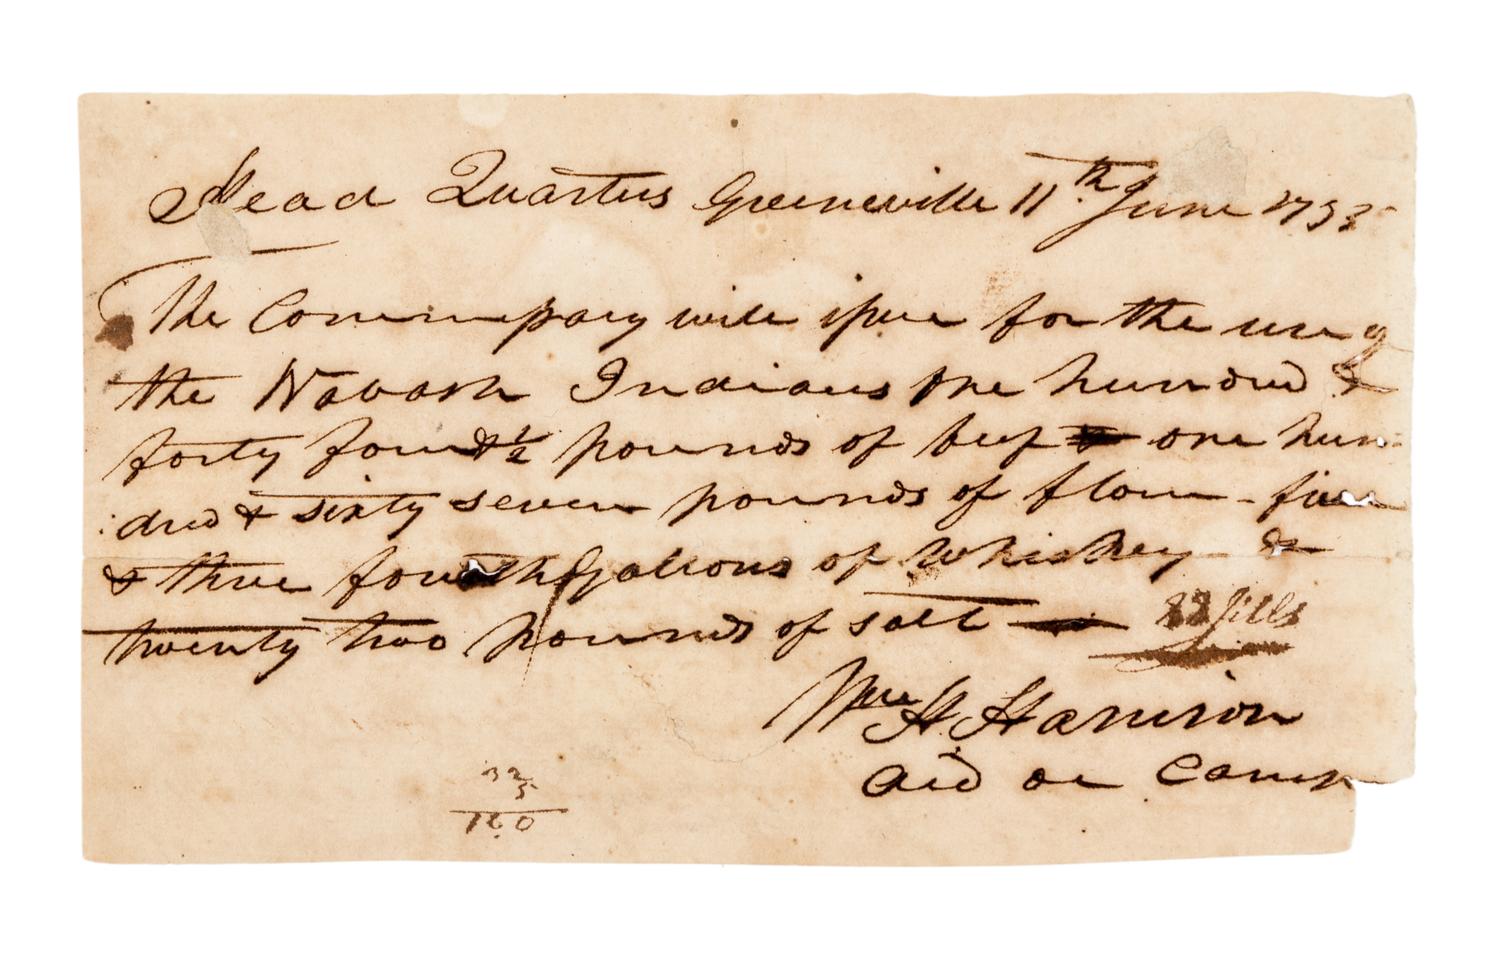 Head Quarters Greeneville 11th. June 1795
The Commissary will issue for the use of
the Wabash Indians one hundred &
forty four & ½ pounds of beef one hun=
:dred & sixty seven pounds of flour - five
& three fourths gallons of Whiskey - &
twenty two pounds of salt 22 Jills
Wm H. Harrison
Aid de Camp
32
5
160